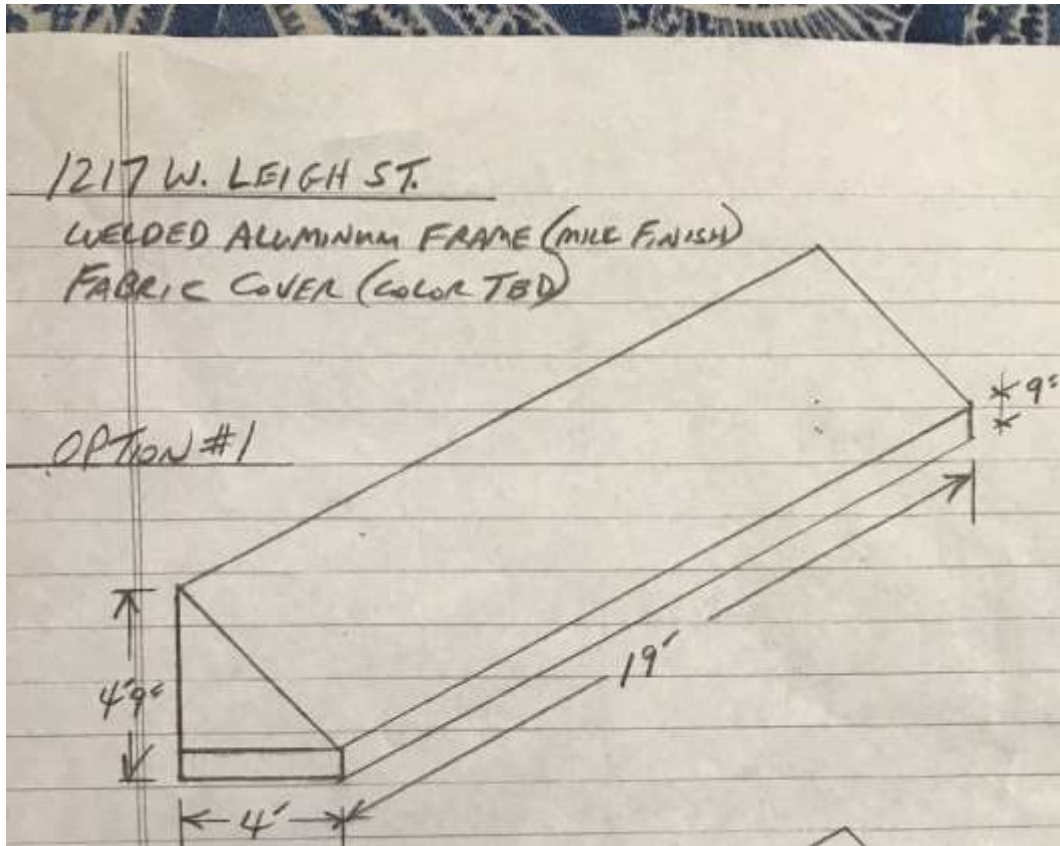 1217 W. LEIGH ST.
WELDED ALUMINUM FRAME (MILL FINISH)
FABRIC COVER (COLOR TBD)
9"
OPTION #1
19'
4'9"
4'